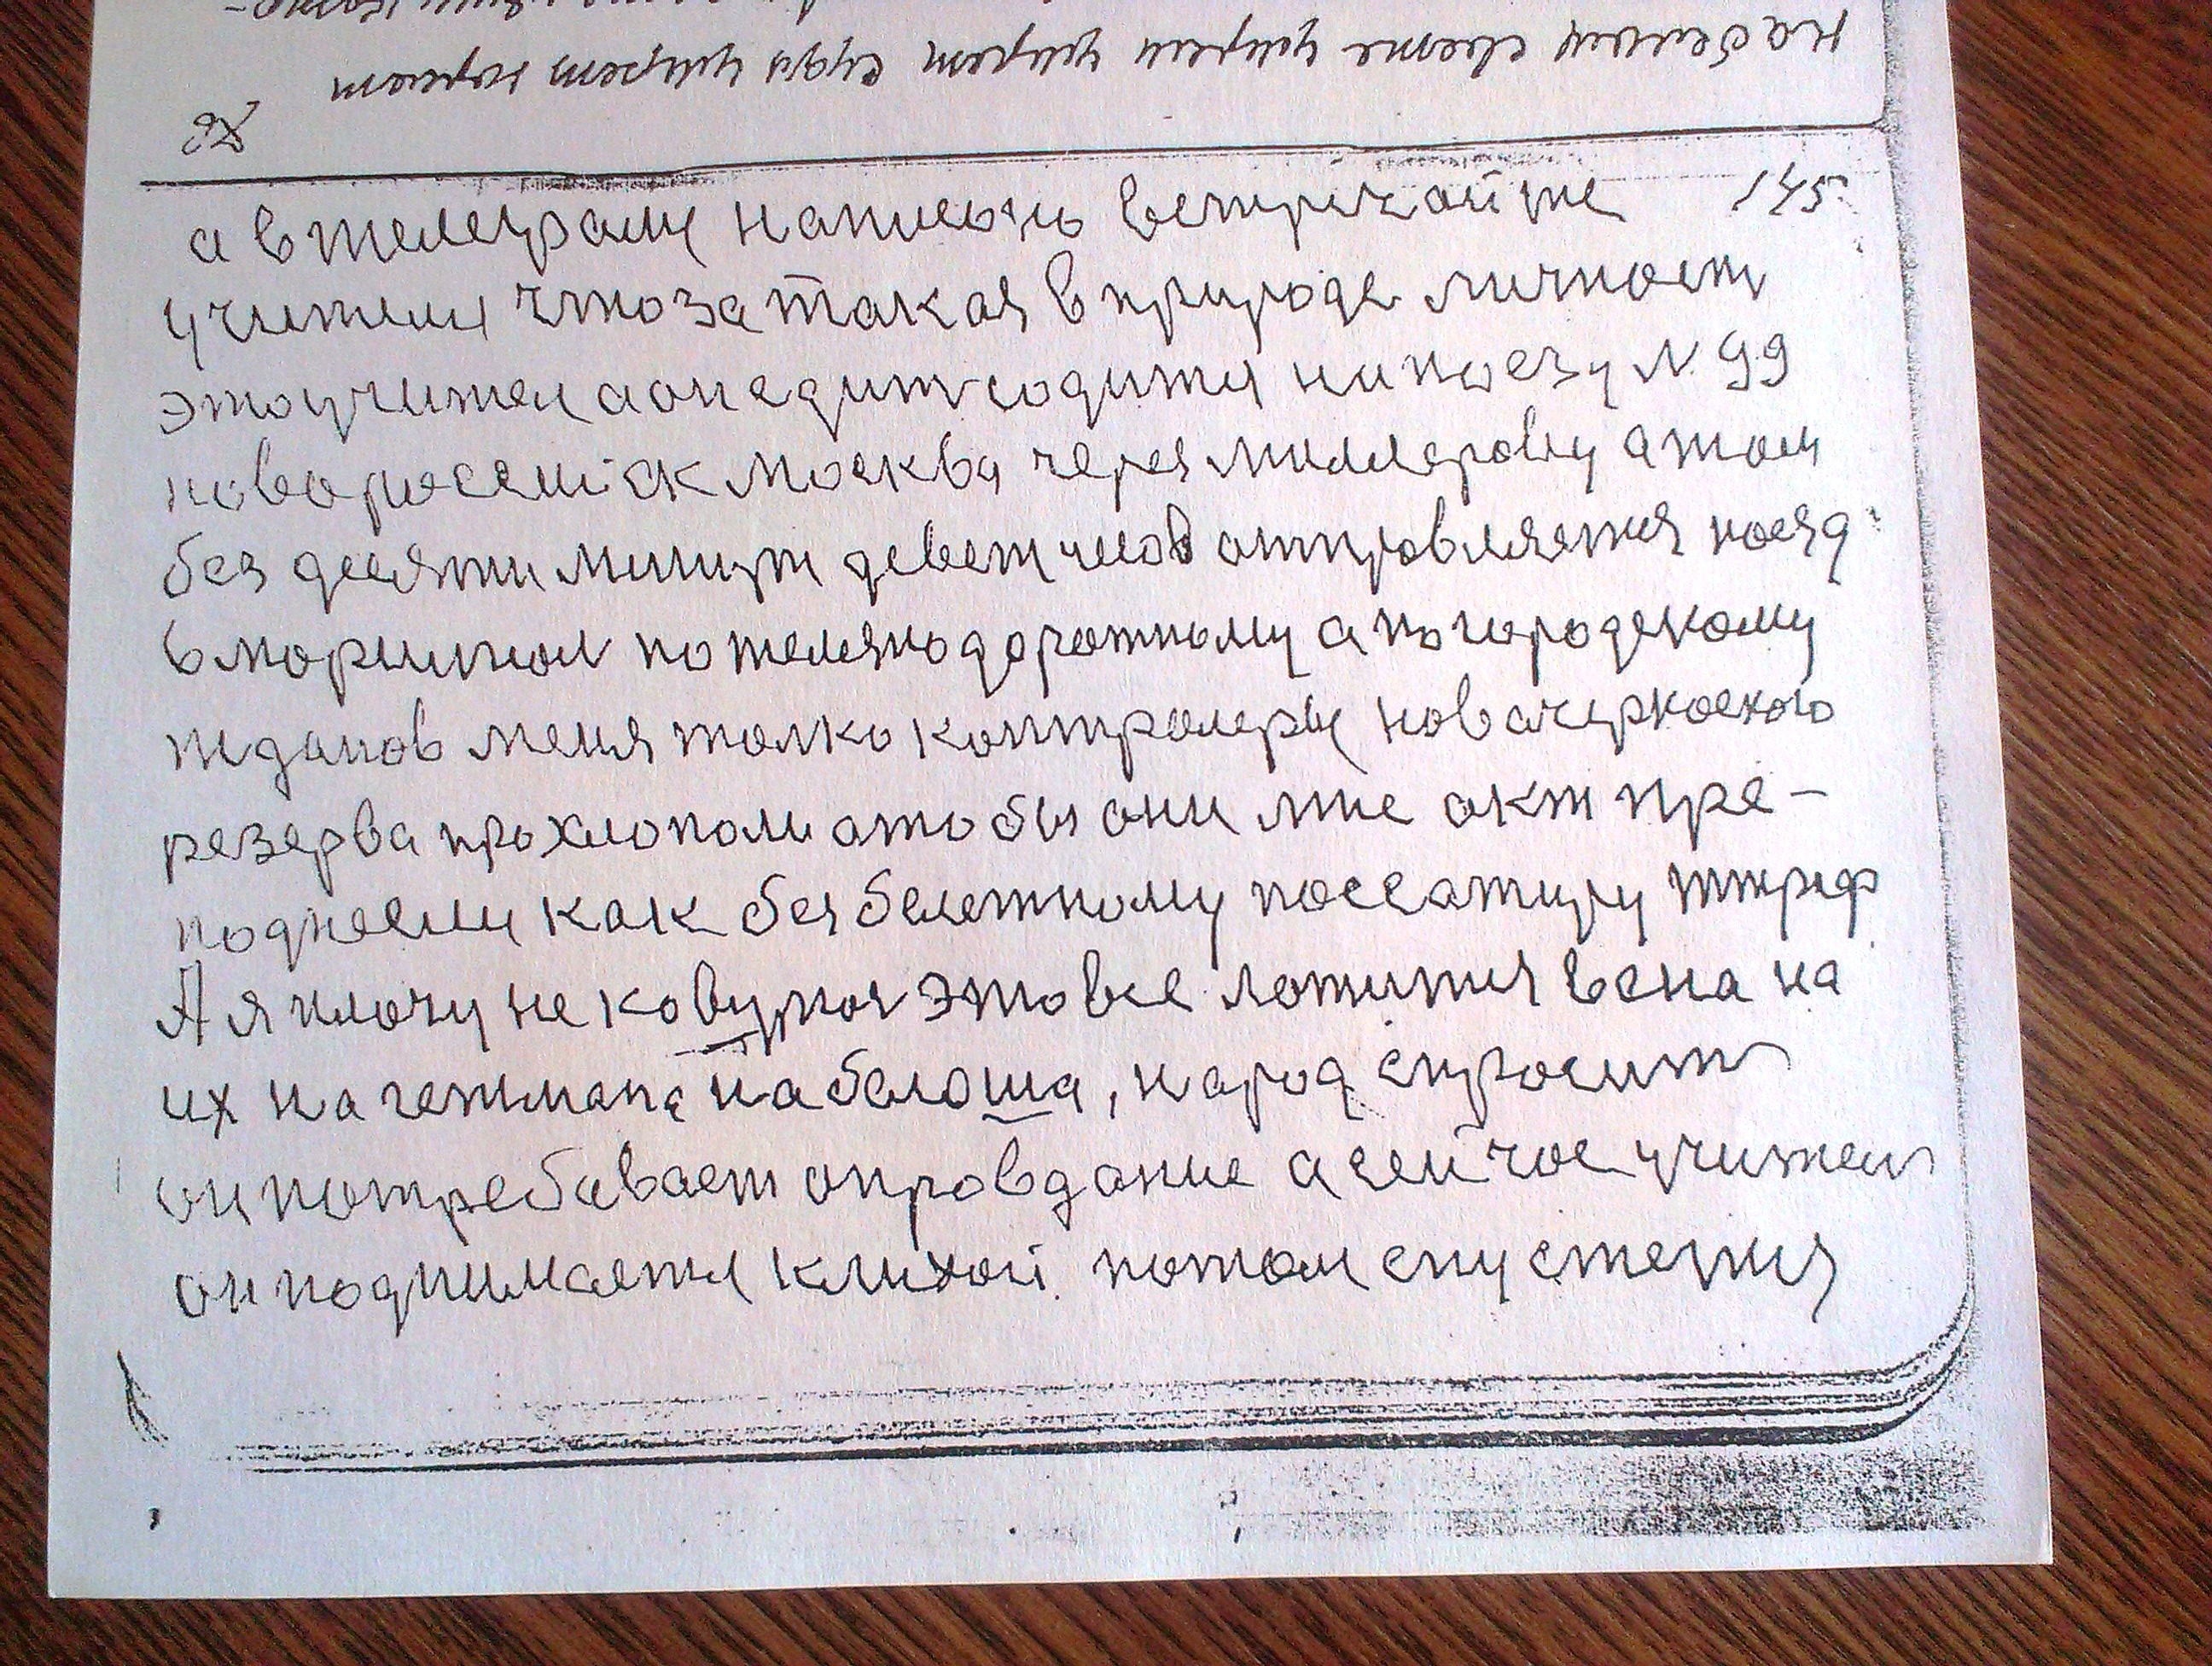 145
а в телеграму написано встречайте
учителя что за такая в природе личност
это учител а он едит содитя на поезу N 99
новоросейск москва через миллерову а там
без десяти минут девет чесов отправляятся поезд
в морцинов по желязнодорожному а по городскому
жданов меня толко контролеры новачеркоского
резерва прохлопали а то бы они мне акт пре-
поднесли как без белетному поссажиру штраф
А я плочу не ковунов это все ложится вена на
их на гетмана на белоша, народ спросит
он потребавает оправдание а сейчос учител
он поднимается клихой потом спустется